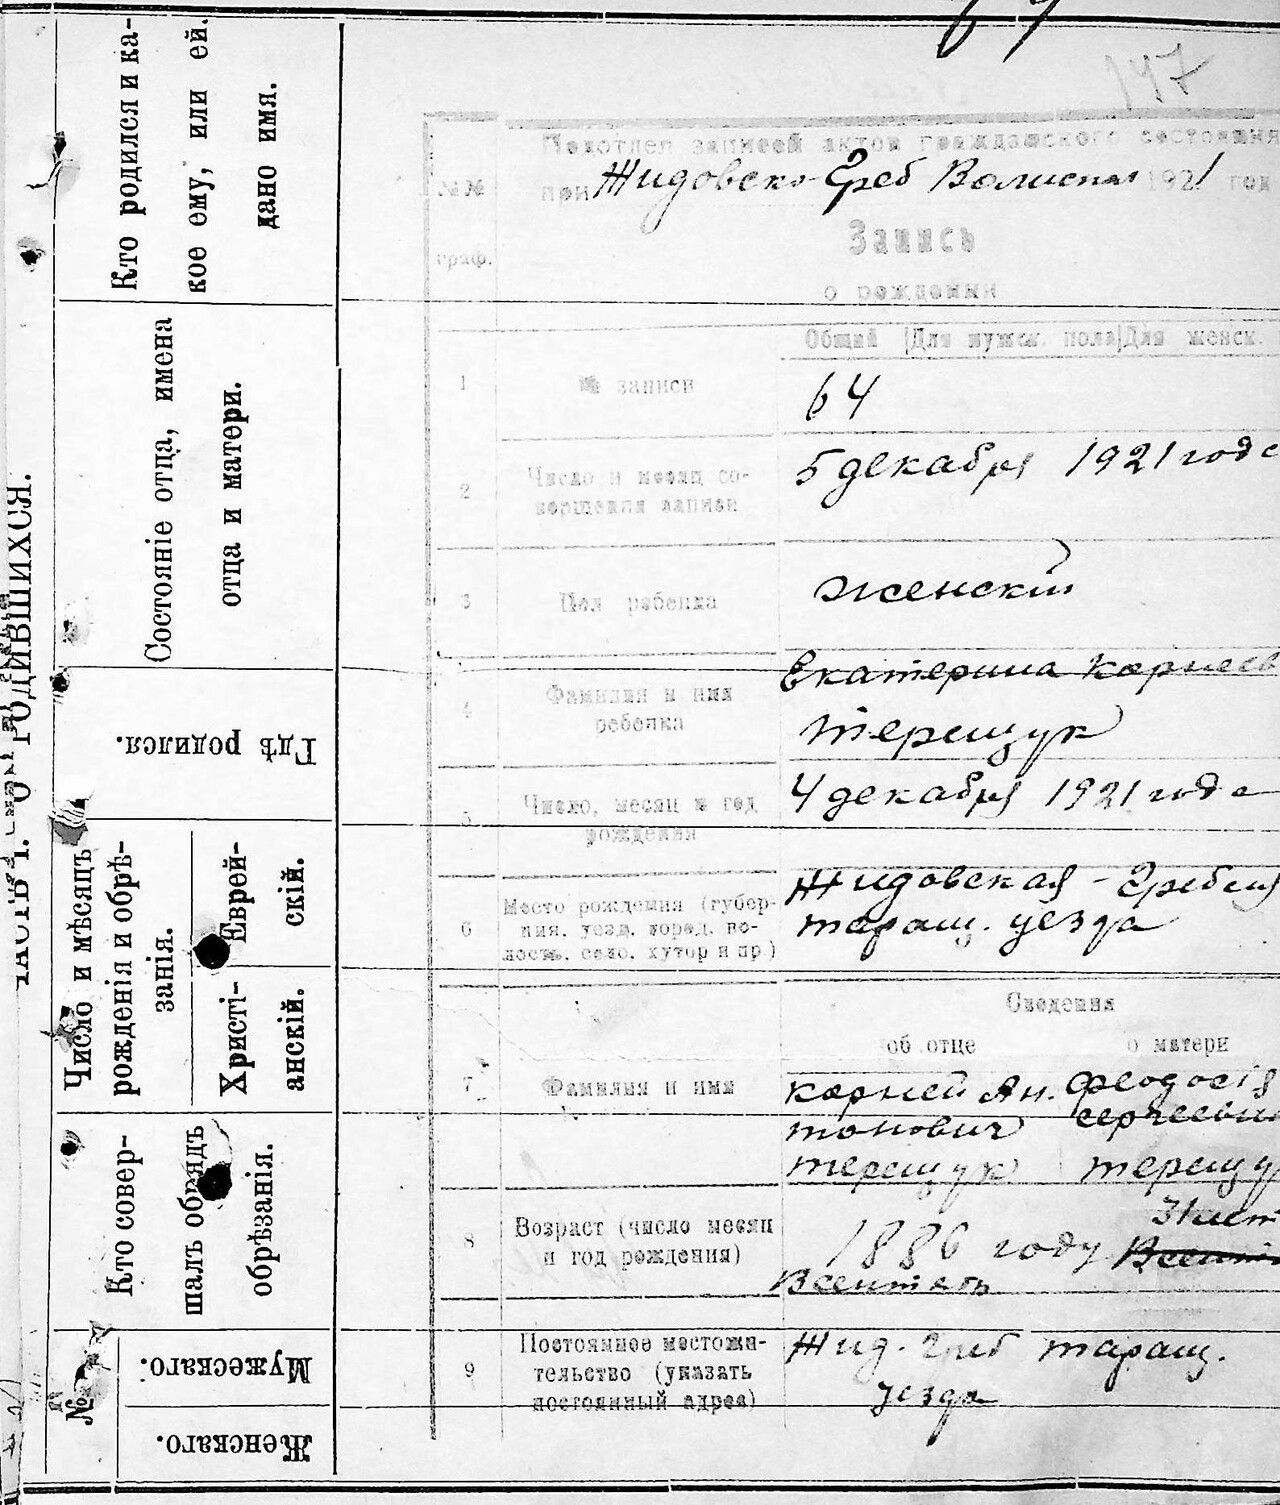 147
Кто родился и ка-
кое ему, или ей.
дано имя.
Состояніе отца, имена
отца и матери.
Гдѣ родился.
Число и мѣсяцъ
рожденія и обрѣ-
занія.
Еврей-
скій.
Христі-
анскій.
Кто совер-
шалъ обрядъ
обрѣзанія.
№
Мужескаго.
Женскаго.
ЧАСТЬ I. О РОДИВШИХСЯ.
№№
граф.
Подотдел записей актов гражданского состояния
при Жидовско-Греб Волиспол 1921 год
Запись
о рождении
Общий Для мужск. пола Для женск.
1 № записи 64
2 Число и месяц со-
вершения записи
5 декабря 1921 года
3 Пол ребенка женский
4 Фамилия и имя
ребенка
Екатерина Корнеев
Терещук
5 Число, месяц и год
рождения
4 декабря 1921 года
6 Место рождения (губер-
ния, уезд, город, во-
лость, село, хутор и пр.)
Жидовская-Гребля
таращ. уезда
Сведения
об отце о матери
7 Фамилия и имя
Корней Ан- Феодосія
тонович Сергеевн
Терещук Терещу
8 Возраст (число месяц
и год рождения)
31 лет
1886 году
9 Постоянное местожи-
тельство (указать
постоянный адрес)
Жид. Греб таращ.
уезда